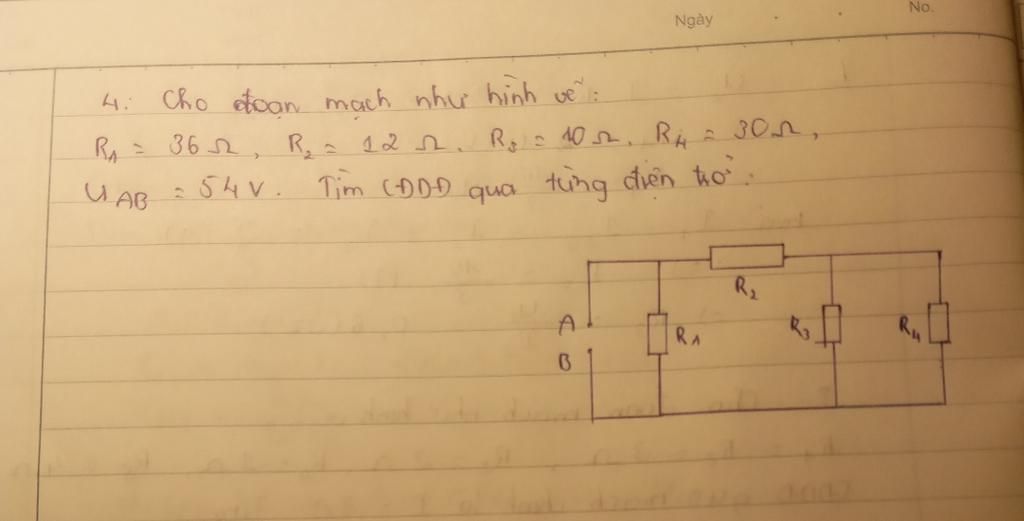 Ngày
No.
4. Cho đoạn mạch như hình vẽ:
R1 = 36 Ω, R2 = 12 Ω. R3 = 10 Ω. R4 = 30 Ω,
UAB = 54 V. Tìm CĐDĐ qua từng điện trở:
R2
A
R1
R3
R4
B